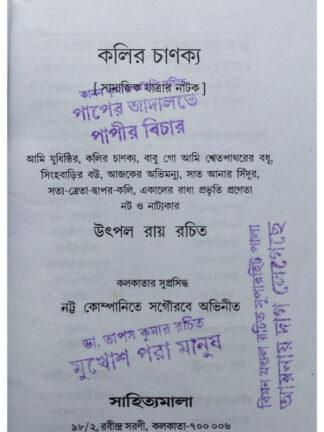 কলির চাণক্য
[ সামাজিক যাত্রার নাটক ]
রচিত
পাপের আদালতে
পাপীর বিচার
আমি যুধিষ্ঠির, কলির চাণক্য, বাবু গো আমি শ্বেতপাথরের বধূ,
সিংহবাড়ির বউ, আজকের অভিমন্যু, সাত আনার সিঁদুর,
সত্য-ত্রেতা-দ্বাপর-কলি, একালের রাধা প্রভৃতি প্রণেতা
নট ও নাট্যকার
উৎপল রায় রচিত
কলকাতার সুপ্রসিদ্ধ
নট্ট কোম্পানিতে সগৌরবে অভিনীত
ডা. তাপস কুমার রচিত
মুখোশ পরা মানুষ
মণ্ডল রচিত সুপারহিট পালা
আয়নায় দাগ লেগেছে
সাহিত্যমালা
৯৮/২, রবীন্দ্র সরণী, কলকাতা-৭০০ ০০৬